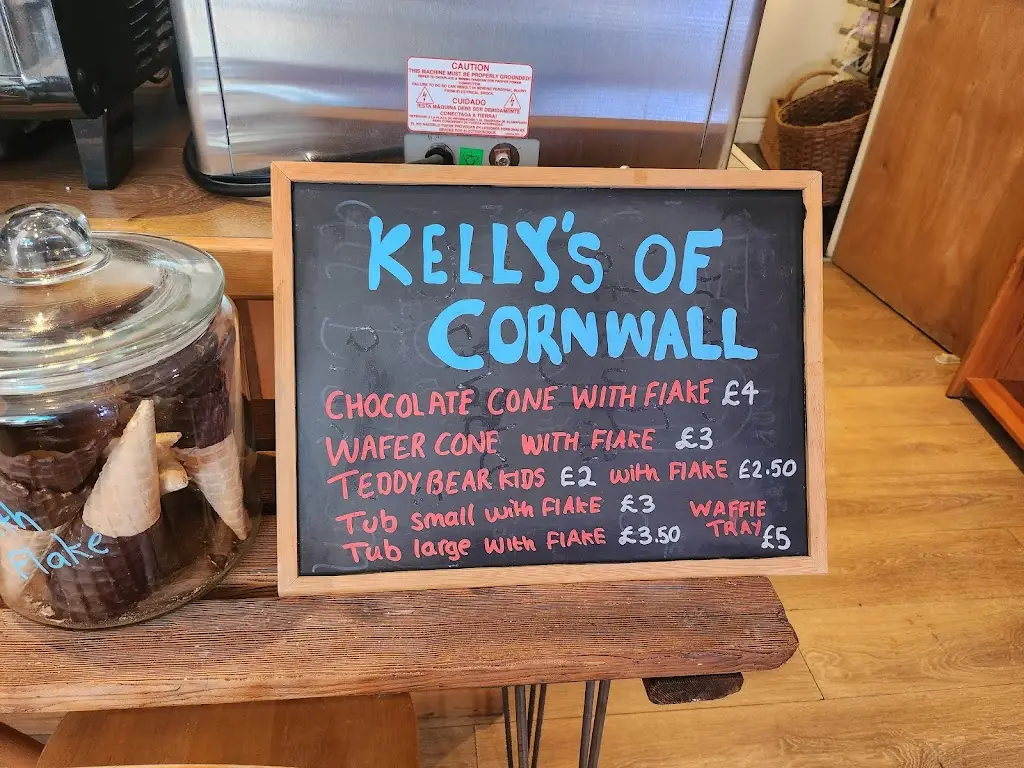 CAUTION
THIS MACHINE MUST BE PROPERLY GROUNDED!
CUIDADO
!ESTA MAQUINA DEBE SER DEBIDAMENTE
CONECTADA A TIERRA!
KELLY'S OF
CORNWALL
CHOCOLATE CONE WITH FLAKE £4
WAFER CONE WITH FLAKE £3
TEDDY BEAR KIDS £2 with FLAKE £2.50
Tub small with FLAKE £3
Tub large with FLAKE £3.50
WAFFIE
TRAY £5
Flake